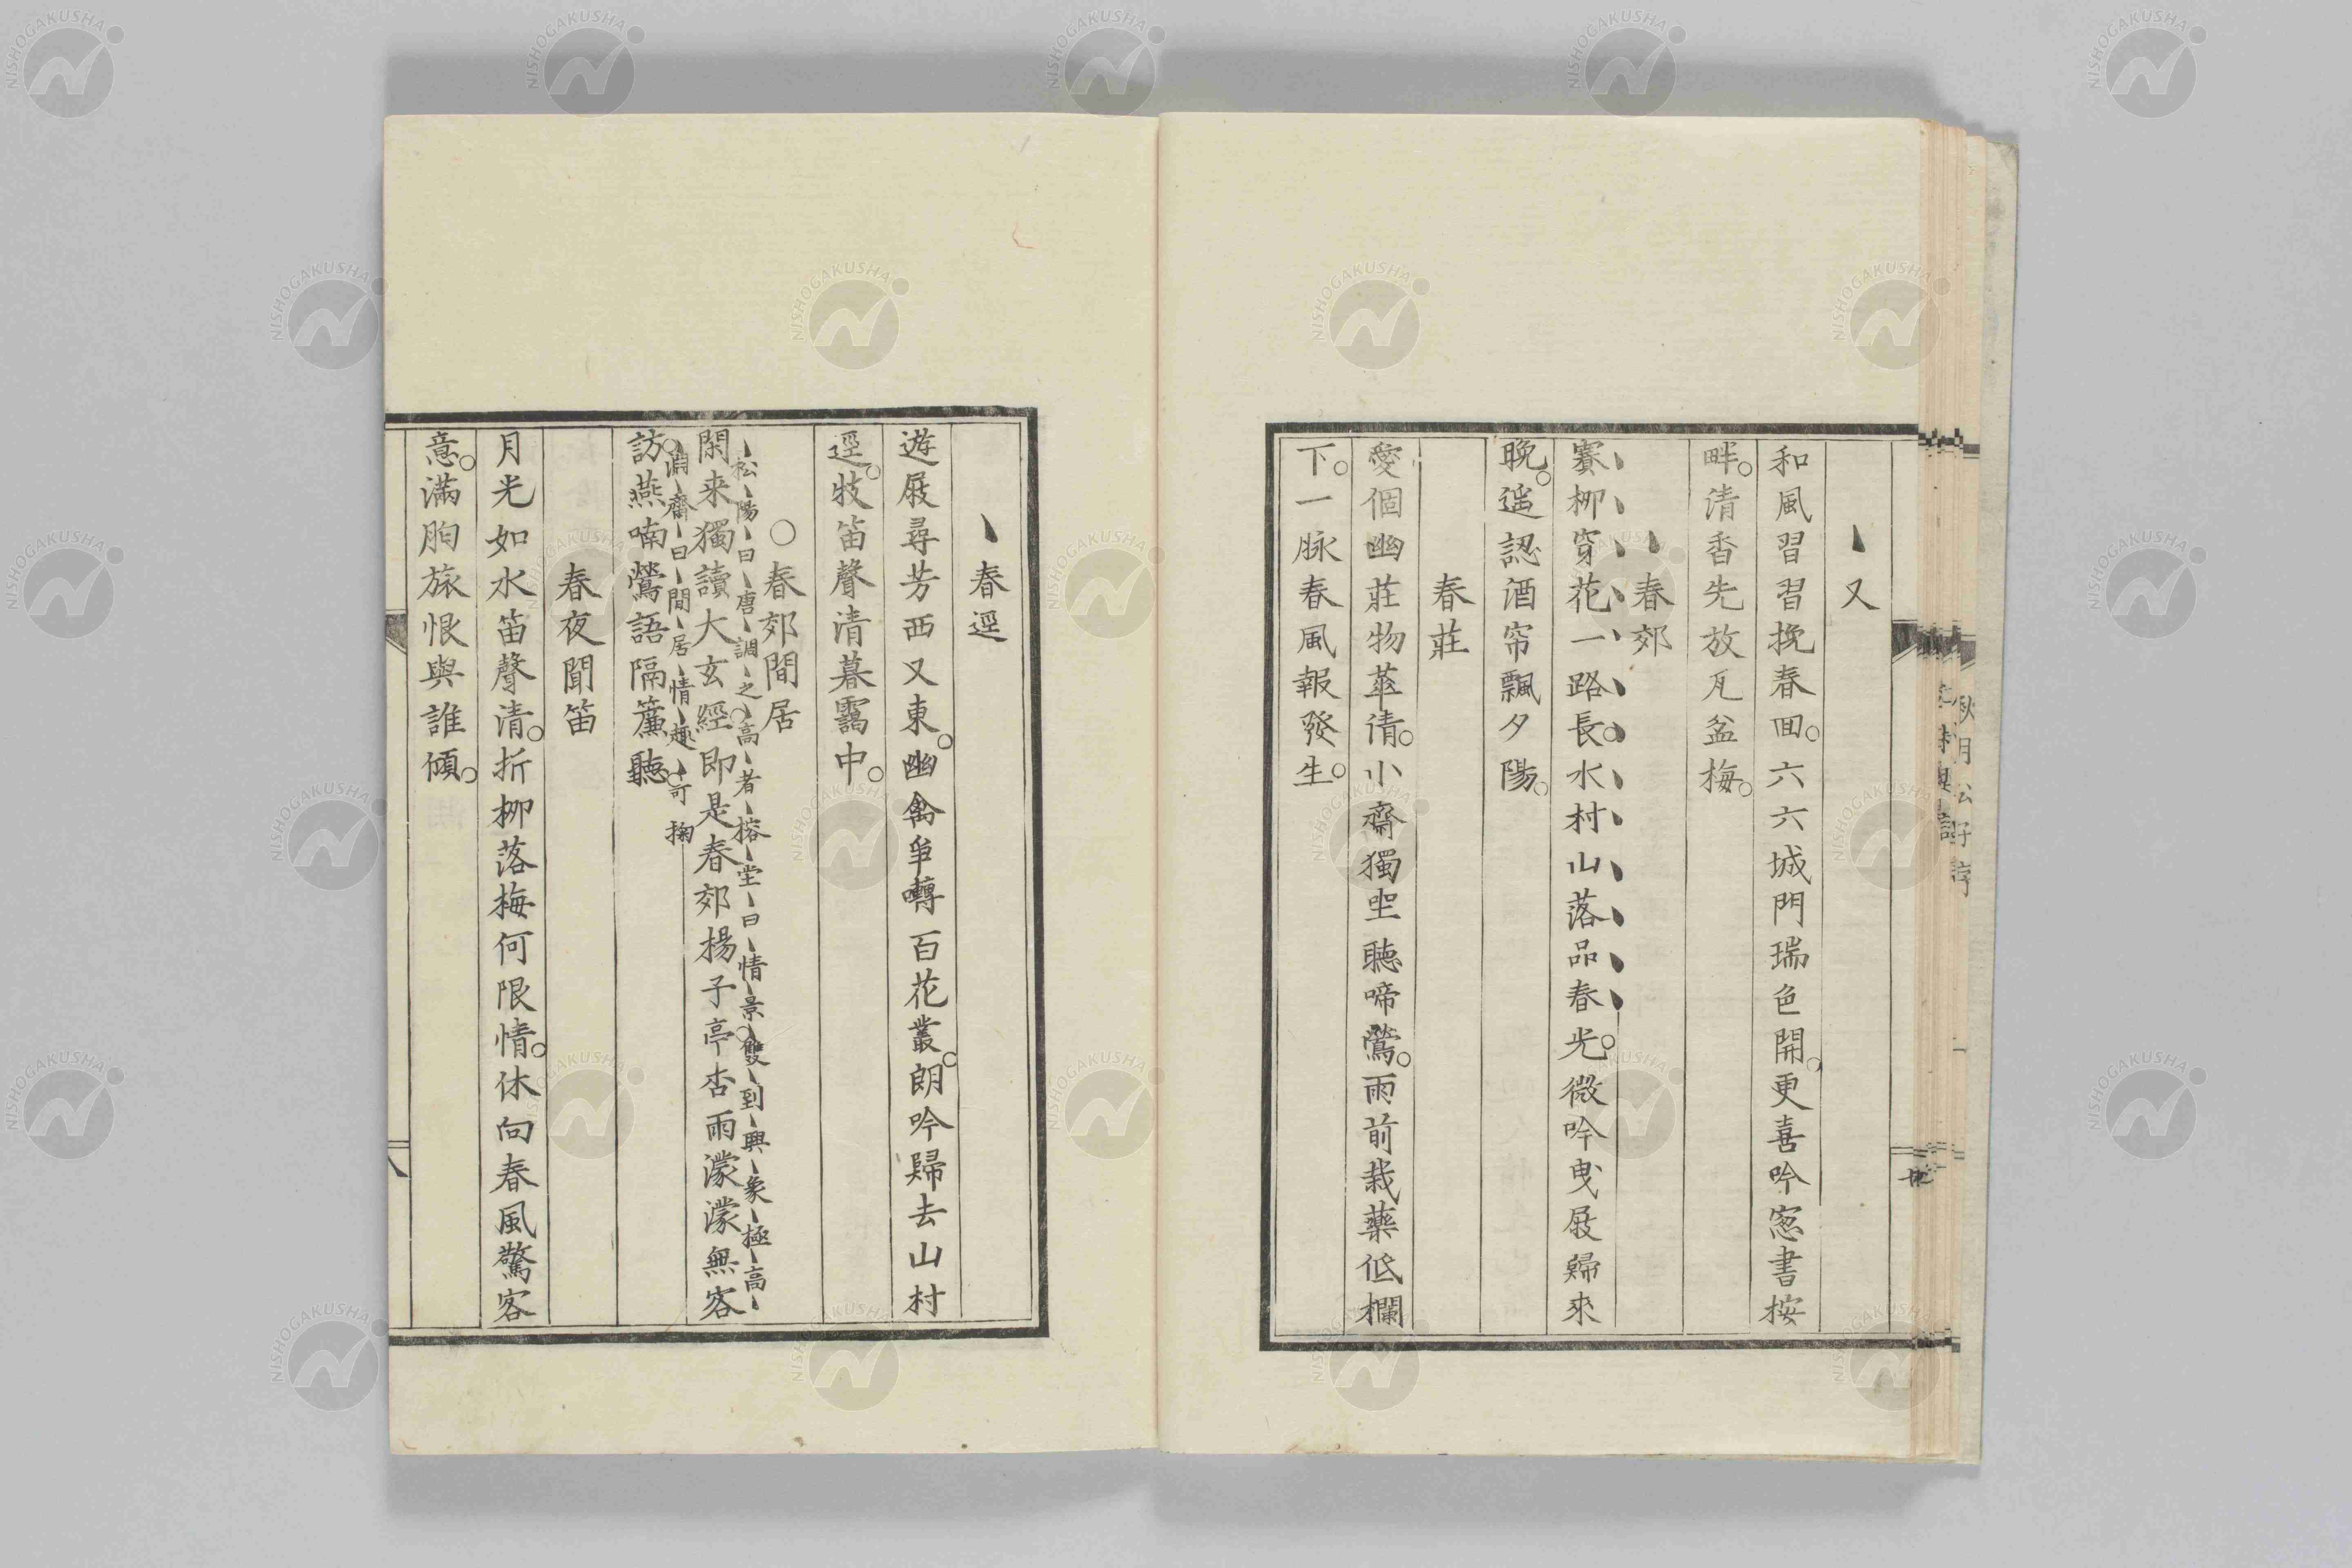 又
和風習習挽春回。六六城門瑞色開。更喜吟窓書桉
畔。清香先放瓦盆梅。
春郊
賽柳穿花一路長。水村山落品春光。微吟曳屐歸來
晩。遥認酒帘飄夕陽。
春莊
愛個幽莊物華清。小齋獨坐聽啼鶯。雨前栽藥低欄
下。一脉春風報發生。
春逕
遊屐尋芳西又東。幽禽争囀百花叢。朗吟歸去山村
逕。牧笛聲清暮靄中。
○春郊閒居
松陽曰唐調之高者榕堂曰情景雙到興象極高
閑來獨讀大玄經。即是春郊楊子亭。杏雨濛濛無客
淵齋曰閒居情趣可掬
訪。燕喃鶯語隔簾聽。
春夜聞笛
月光如水笛聲清。折柳落梅何限情。休向春風驚客
意。滿胸旅恨與誰傾。
八
NISHOGAKUSHA